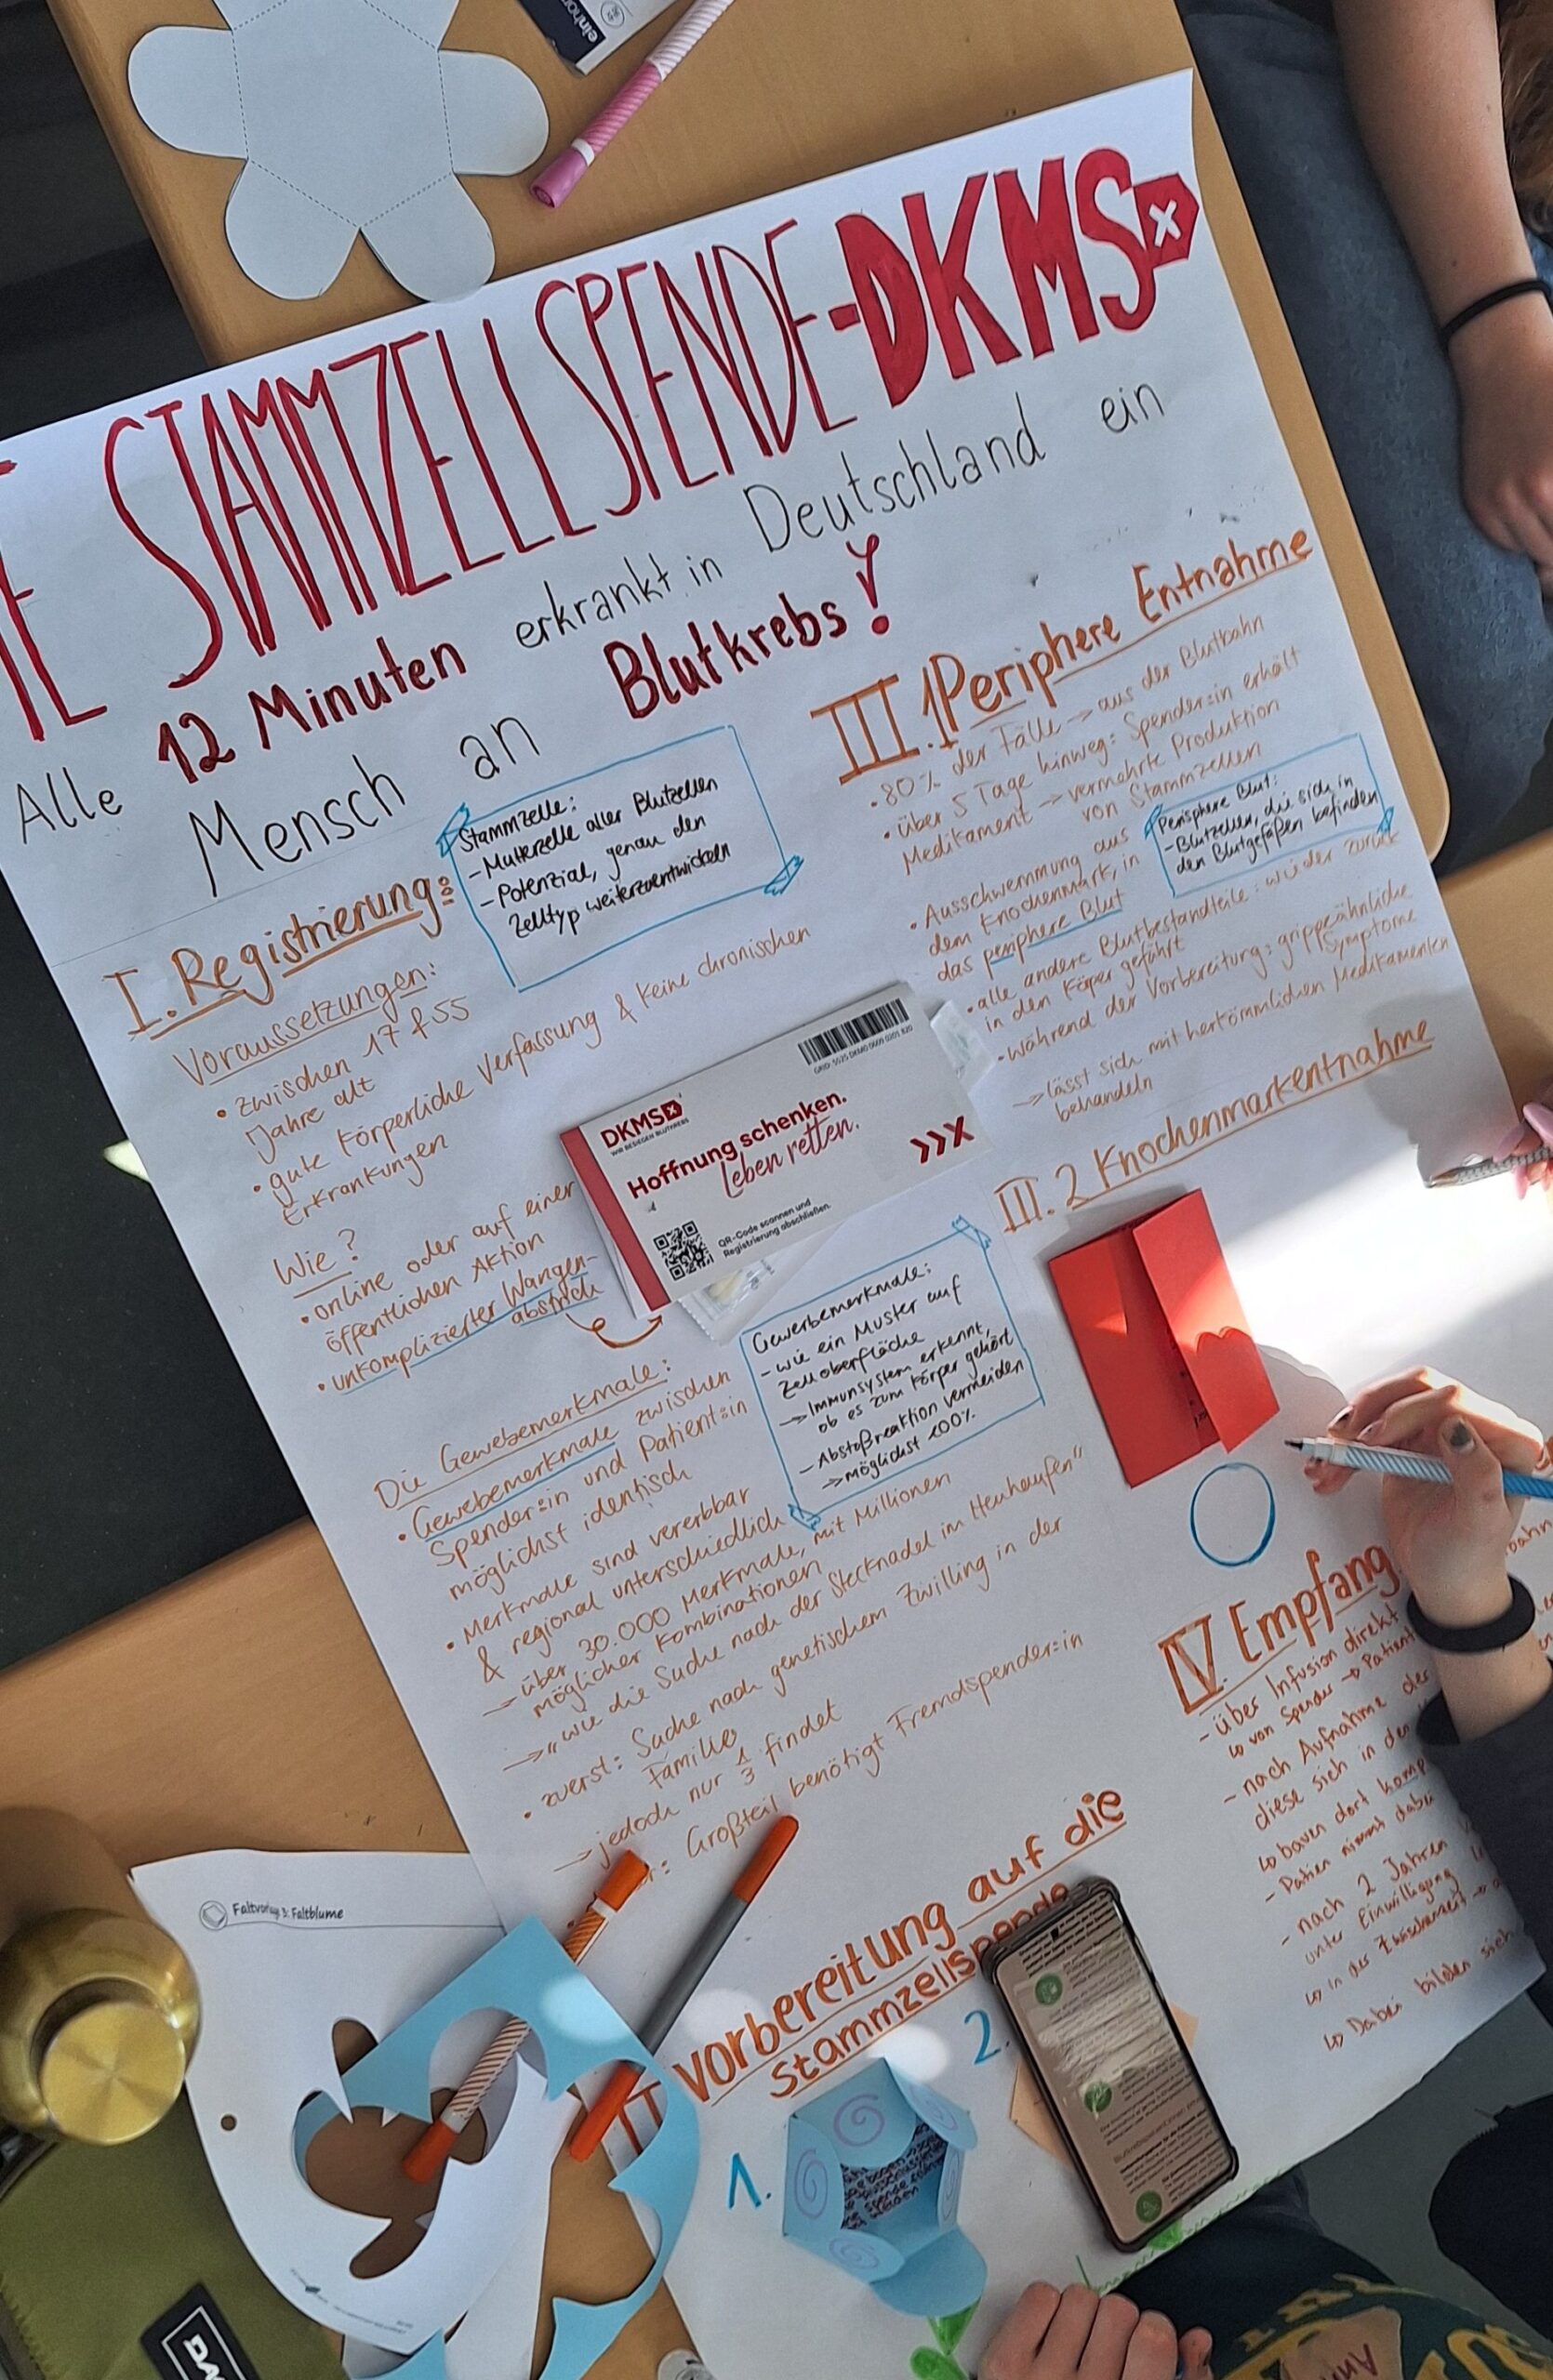 einhorn
STAMMZELLSPENDE-DKMS
Alle 12 Minuten erkrankt in Deutschland ein
Mensch an Blutkrebs!
I. Registrierung:
Voraussetzungen:
• zwischen 17 & 55
Jahre alt
• gute körperliche Verfassung & keine chronischen
Erkrankungen
Wie?
• online oder auf einer
öffentlichen Aktion
• unkomplizierter Wangen-
abstrich
Stammzelle:
- Mutterzelle aller Blutzellen
- Potenzial, genau den
Zelltyp weiterzuentwickeln
DKMS
WIR BESIEGEN BLUTKREBS
Hoffnung schenken.
Leben retten.
QR-Code scannen und
Registrierung abschließen.
Die Gewebemerkmale:
• Gewebemerkmale zwischen
Spender:in und Patient:in
möglichst identisch
• Merkmale sind vererbbar
& regional unterschiedlich
→ über 30.000 Merkmale, mit Millionen
möglicher Kombinationen
→ "wie die Suche nach der Stecknadel im Heuhaufen"
• zuerst: Suche nach genetischem Zwilling in der
Familie
→ jedoch nur 1/3 findet
: Großteil benötigt Fremdspender:in
Gewerbemerkmale:
- wie ein Muster auf
Zelloberfläche
→ Immunsystem erkennt,
ob es zum Körper gehört
- Abstoßreaktion vermeiden
→ möglichst 100%
II Vorbereitung auf die
Stammzellspende
1.
2.
III.1 Periphere Entnahme
• 80% der Fälle → aus der Blutbahn
• über 5 Tage hinweg: Spender:in erhält
Medikament → vermehrte Produktion
von Stammzellen
• Ausschwemmung aus
dem Knochenmark, in
das periphere Blut
Perisphere Blut:
- Blutzellen, die sich in
den Blutgefäßen befinden
• alle andere Blutbestandteile: wieder zurück
in den Köper geführt
• während der Vorbereitung: grippeähnliche
Symptome
→ lässt sich mit herkömmlichen Medikamenten
behandeln
III.2 Knochenmarkentnahme
IV Empfang
- über Infusion direkt
↳ von Spender → Patient
- nach Aufnahme der
diese sich in den
↳ bauen dort komp
- Patien nimmt dabei
- nach 2 Jahren
unter Einwilligung
↳ in der Zwischenzeit →
↳ Dabei bilden sich
Faltvorlage 3: Faltblume